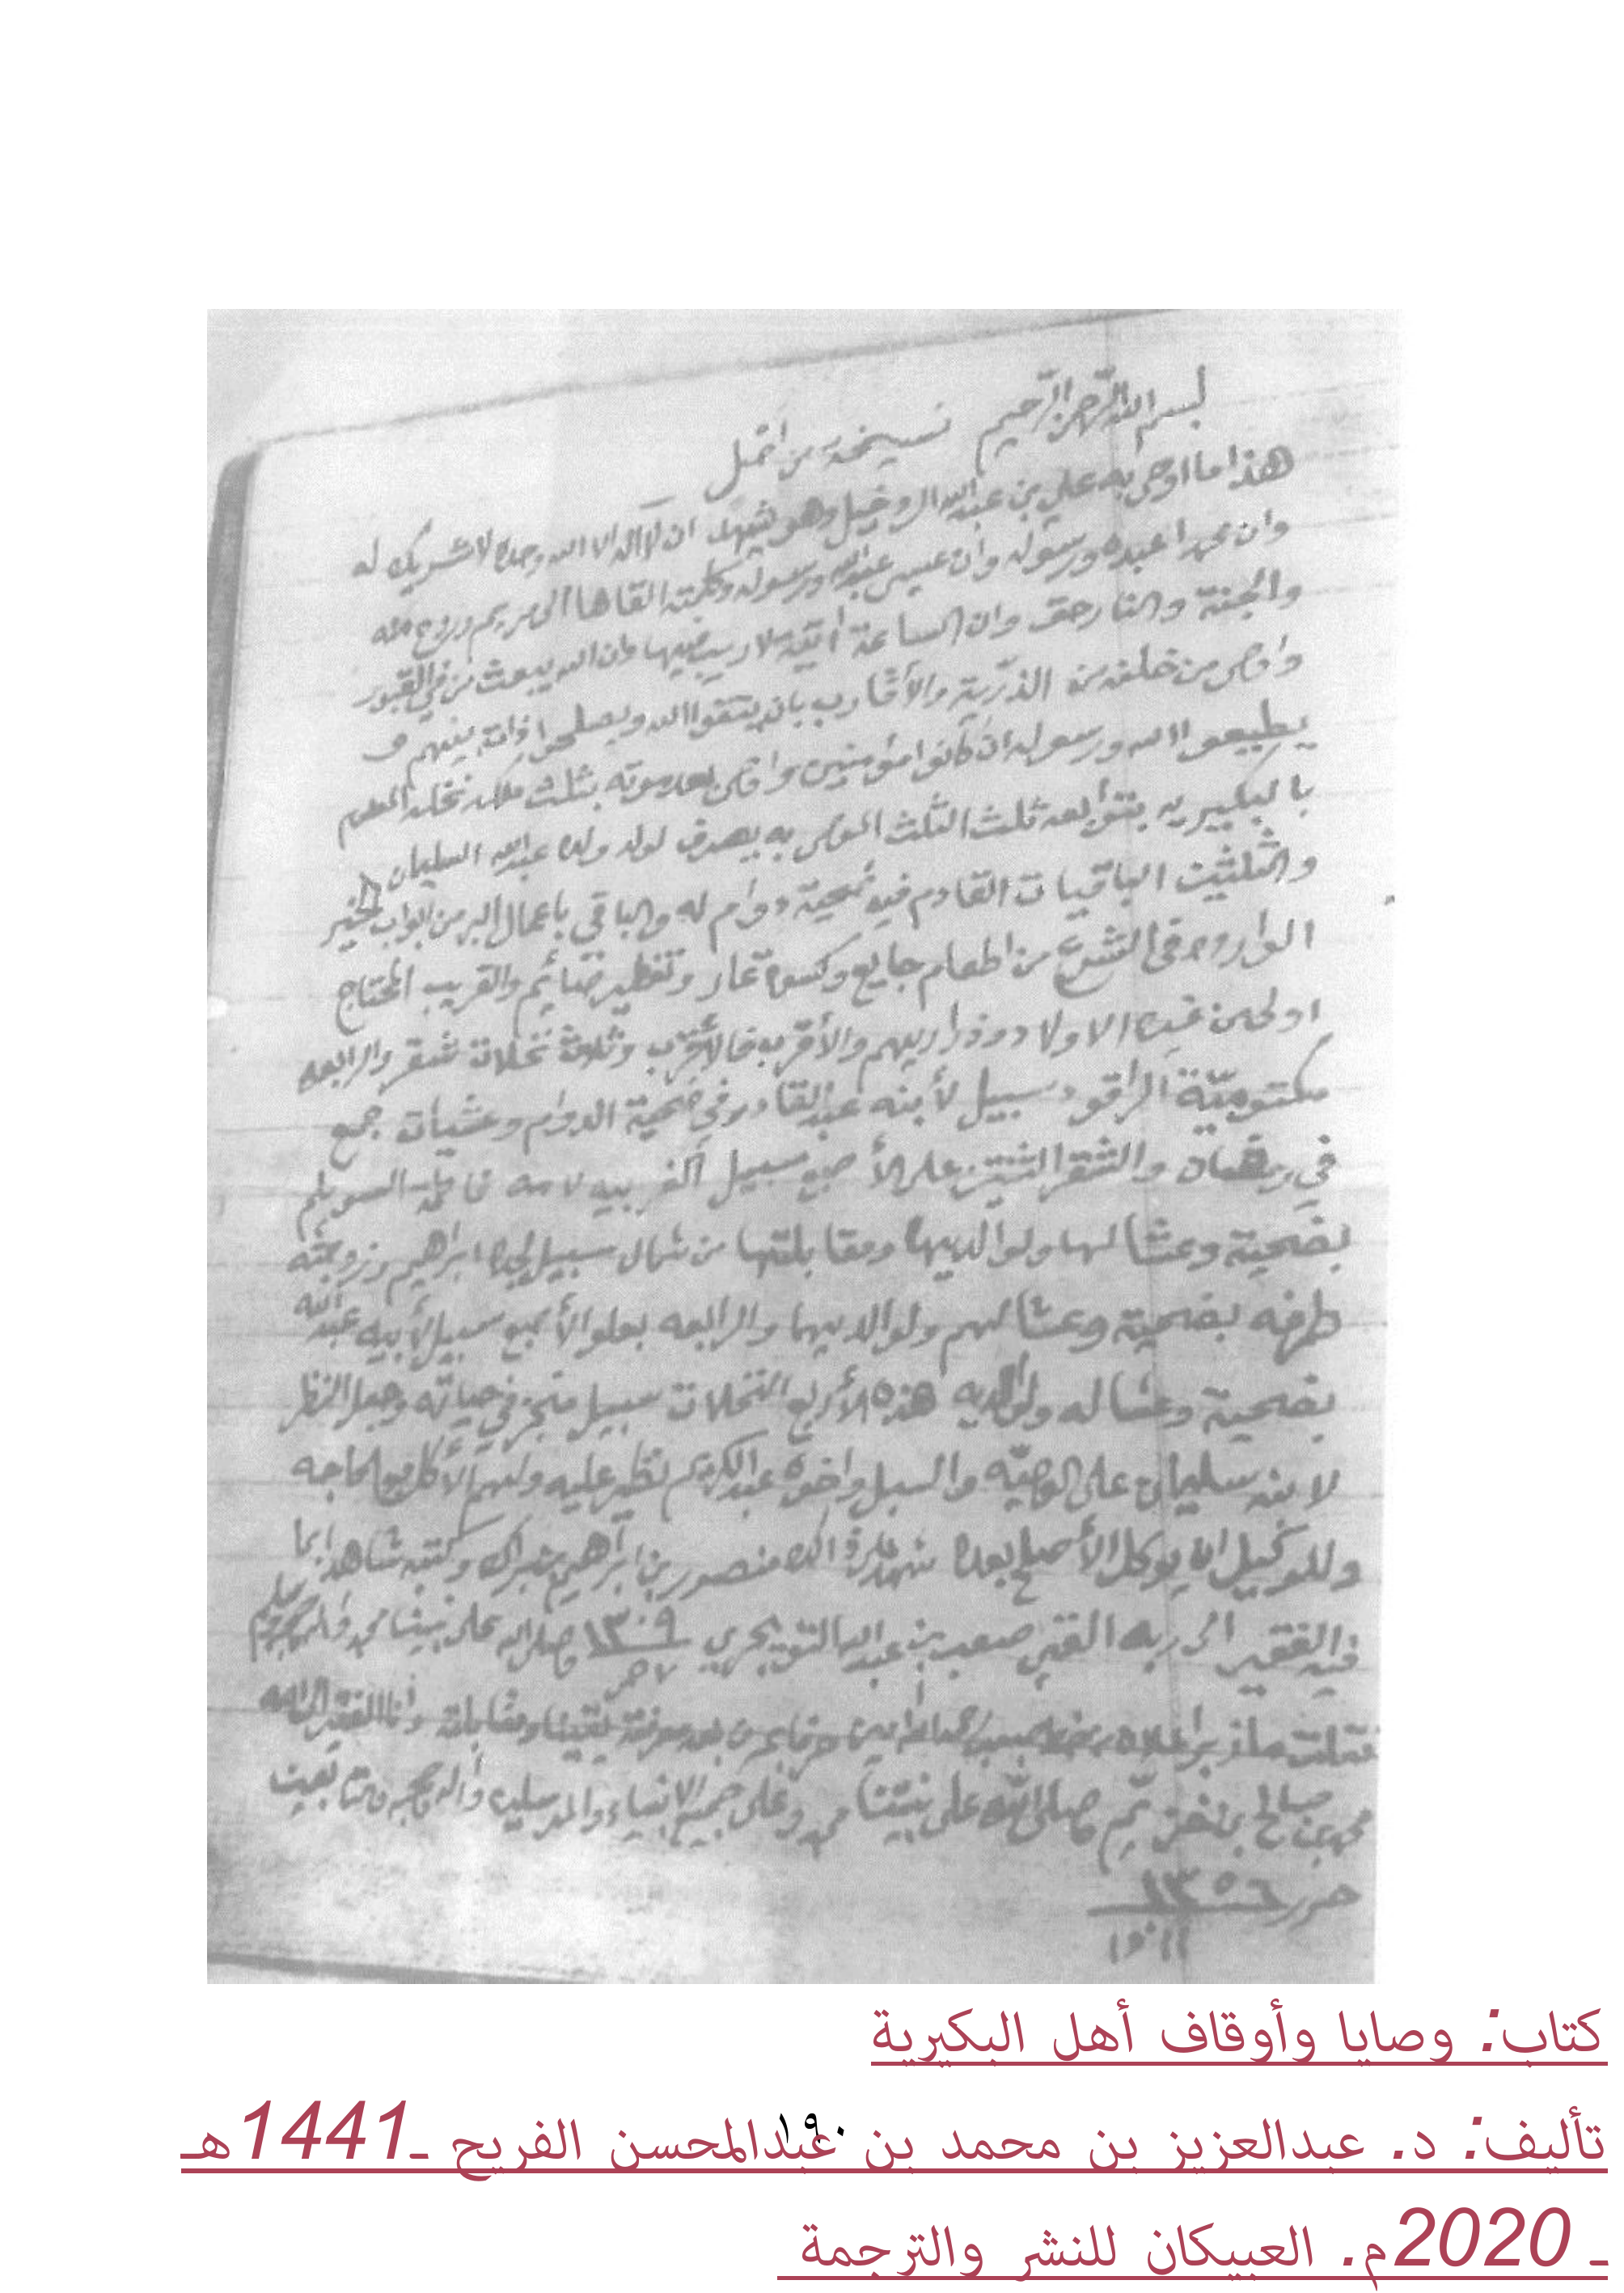 بسم الله الرحمن الرحيم نسيخة من اصل
هذا ما اوصى به علي بن عبدالله الروخيل وهو يشهد ان لا اله الا الله وحده لا شريك له
وان محمدا عبده ورسوله وان عيسى عبدالله ورسوله وكلمته القاها الى مريم وروح منه
والجنة والنار حق وان الساعة آتية لا ريب فيها وان الله يبعث من في القبور
واوصى من خلفه من الذرّية والأقارب بان يتقوا الله ويصلحوا ذات بينهم و
يطيعوا الله ورسوله ان كانوا مؤمنين واوصى بعد موته بثلث ملكه نخله
بالبكيريه ثلث الثلث الموصى به يصرف لولد ولده عبدالله السليمان
والثلثين الباقيات القادم فيه ضحية دوام له والباقي باعمال البر من ابواب الخير
الوارده في الشرع من اطعام جايع وكسوة عار وتفطير صائم والقريب المحتاج
اولى من غيره الاولاد وذراريهم والأقرب فالأقرب وثلاث نخلات شقر والرابعه
مكتوميّة سبيل لأبنه عبدالقادر في ضحية الدوام وعشيات جمع
في رمضان والشقر الثنتين على الأصبع سبيل الغربيه لامه السويلم
بضحية وعشا لها ولوالديها ومقابلتها من شمال سبيل لجده ابراهيم وزوجته
طرفه بضحية وعشا لهم ولوالديهما والرابعه بعلو الأصبع سبيل لأبيه عبدالله
بضحية وعشا له ولوالديه هذه الأربع النخلات سبيل منجز في حياته وجعل النظر
لابنه سليمان على الوصيّه والسبل واخوه عبدالكريم نظير عليه ولهم الأكل مع الحاجه
وللوكيل ان يوكل الأصلح بعده شهد على ذالك منصور بن ابراهيم وكتبه شاهدا بما
فيه الفقير الى ربه صعب بن عبدالله التويجري ١٣٠٩ وصلى الله على نبينا محمد وآله وصحبه وسلم
نقلت ما ذبر اعلاه من خط صعب بعد معرفته يقينا ومقابلة وأنا الفقير الى الله
محمد بن صالح بن خزيّم صلى الله على نبيّنا محمد وعلى جميع الانبياء والمرسلين وآله وصحبه والتابعين
حرر ١٣٥٦
كتاب: وصايا وأوقاف أهل البكيرية
١٩٠
تأليف: د. عبدالعزيز بن محمد بن عبدالمحسن الفريح ـ1441هـ
ـ 2020م. العبيكان للنشر والترجمة